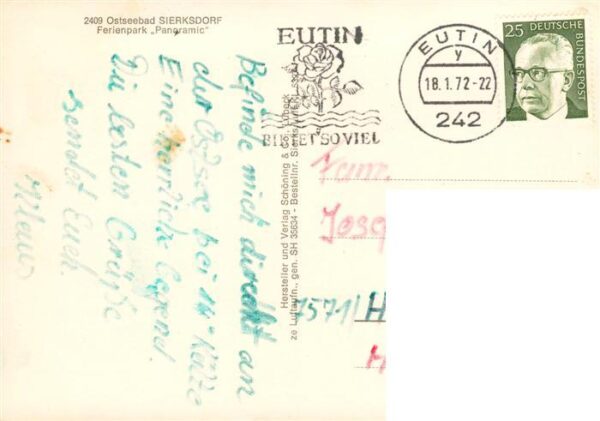 2409 Ostseebad SIERKSDORF
Ferienpark „Panoramic"
EUTIN
BIETET SO VIEL
EUTIN
y
18.1.72-22
242
25
DEUTSCHE BUNDESPOST
Befinde mich direkt an
der Ostsee bei 14° Kälte
Eine herrliche Gegend
Die besten Grüße
sendet Euch
Hersteller und Verlag Schöning & Co., Lübeck
ze Luftaufn., gen. SH 35634 - Bestellnr. Sierks
Josep
7571/ H
H